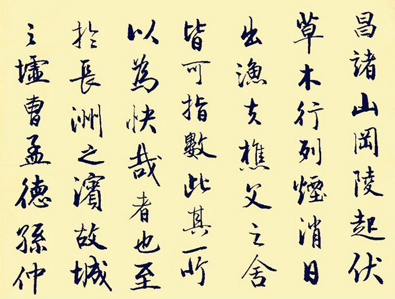 昌諸山岡陵起伏
草木行列煙消日
出漁夫樵父之舍
皆可指數此其所
以為快哉者也至
於長洲之濱故城
之墟曹孟德孫仲